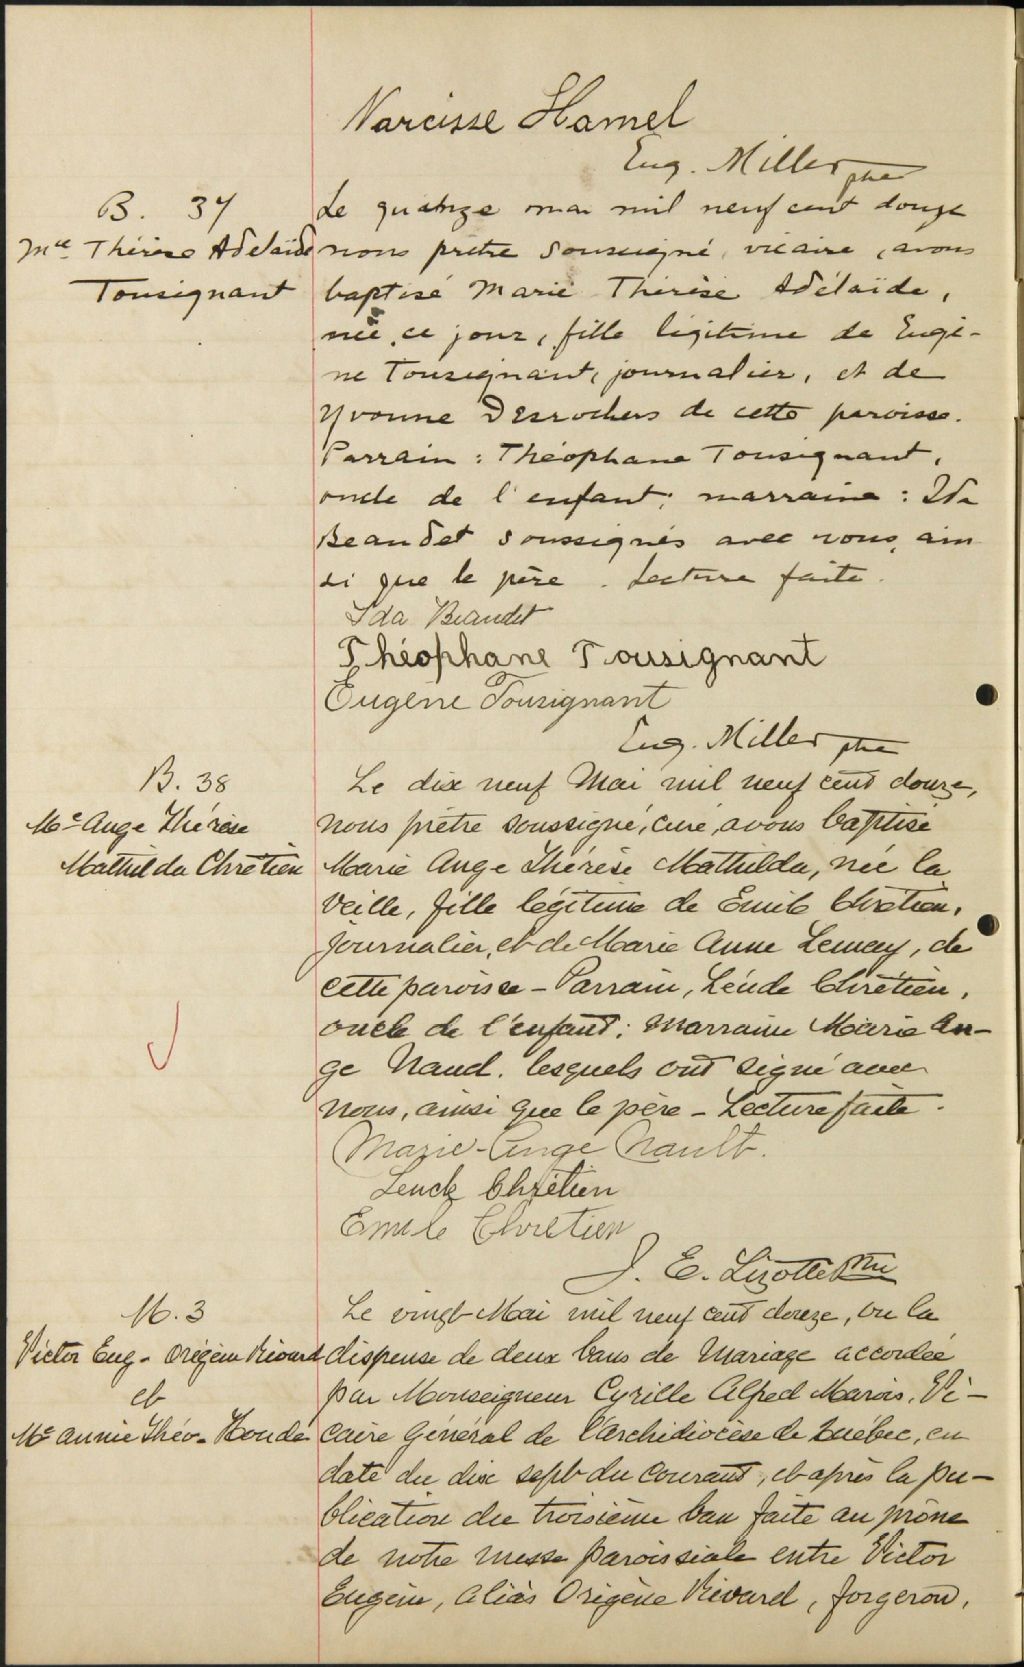 Narcisse Hamel
Eug. Miller ptre
B. 37
Mie Thérèse Adelaïde
Tousignant
Le quatorze mai mil neuf cent douze
nous prêtre soussigné, vicaire, avons
baptisé Marie Thérèse Adélaïde,
née ce jour, fille légitime de Eugè-
ne Tousignant, journalier, et de
Yvonne Desrochers de cette paroisse.
Parrain : Théophane Tousignant,
oncle de l'enfant; marraine : Ida
Beaudet soussignés avec nous, ain
si que le père. Lecture faite.
Ida Beaudet
Théophane Tousignant
Eugène Tousignant
Eug. Miller ptre
B. 38
Me Ange Thérèse
Mathilda Chrétien
Le dix neuf Mai mil neuf cent douze,
nous prêtre soussigné, curé, avons baptisé
Marie Ange Thérèse Mathilda, née la
veille, fille légitime de Emile Chrétien,
journalier, et de Marie Anne Lemay, de
cette paroisse - Parrain, Léude Chrétien,
oncle de l'enfant; Marraine Marie An-
ge Naud. lesquels ont signé avec
nous, ainsi que le père - Lecture faite.
Marie-Ange Nault.
Chrétien
Emile Chretien
J. E. Lizotte Ptre
M. 3
Victor Eug. Origène Rivard
et
Me Annie Théo. Houde
Le vingt Mai mil neuf cent douze, vu la
dispense de deux bans de Mariage accordée
par Monseigneur Cyrille Alfred Marois, Vi-
caire Général de l'Archidiocèse de Québec, en
date du dix sept du courant, et après la pu-
blication du troisième ban faite au prône
de notre messe paroissiale entre Victor
Eugène, aliàs Origène Rivard, forgeron,